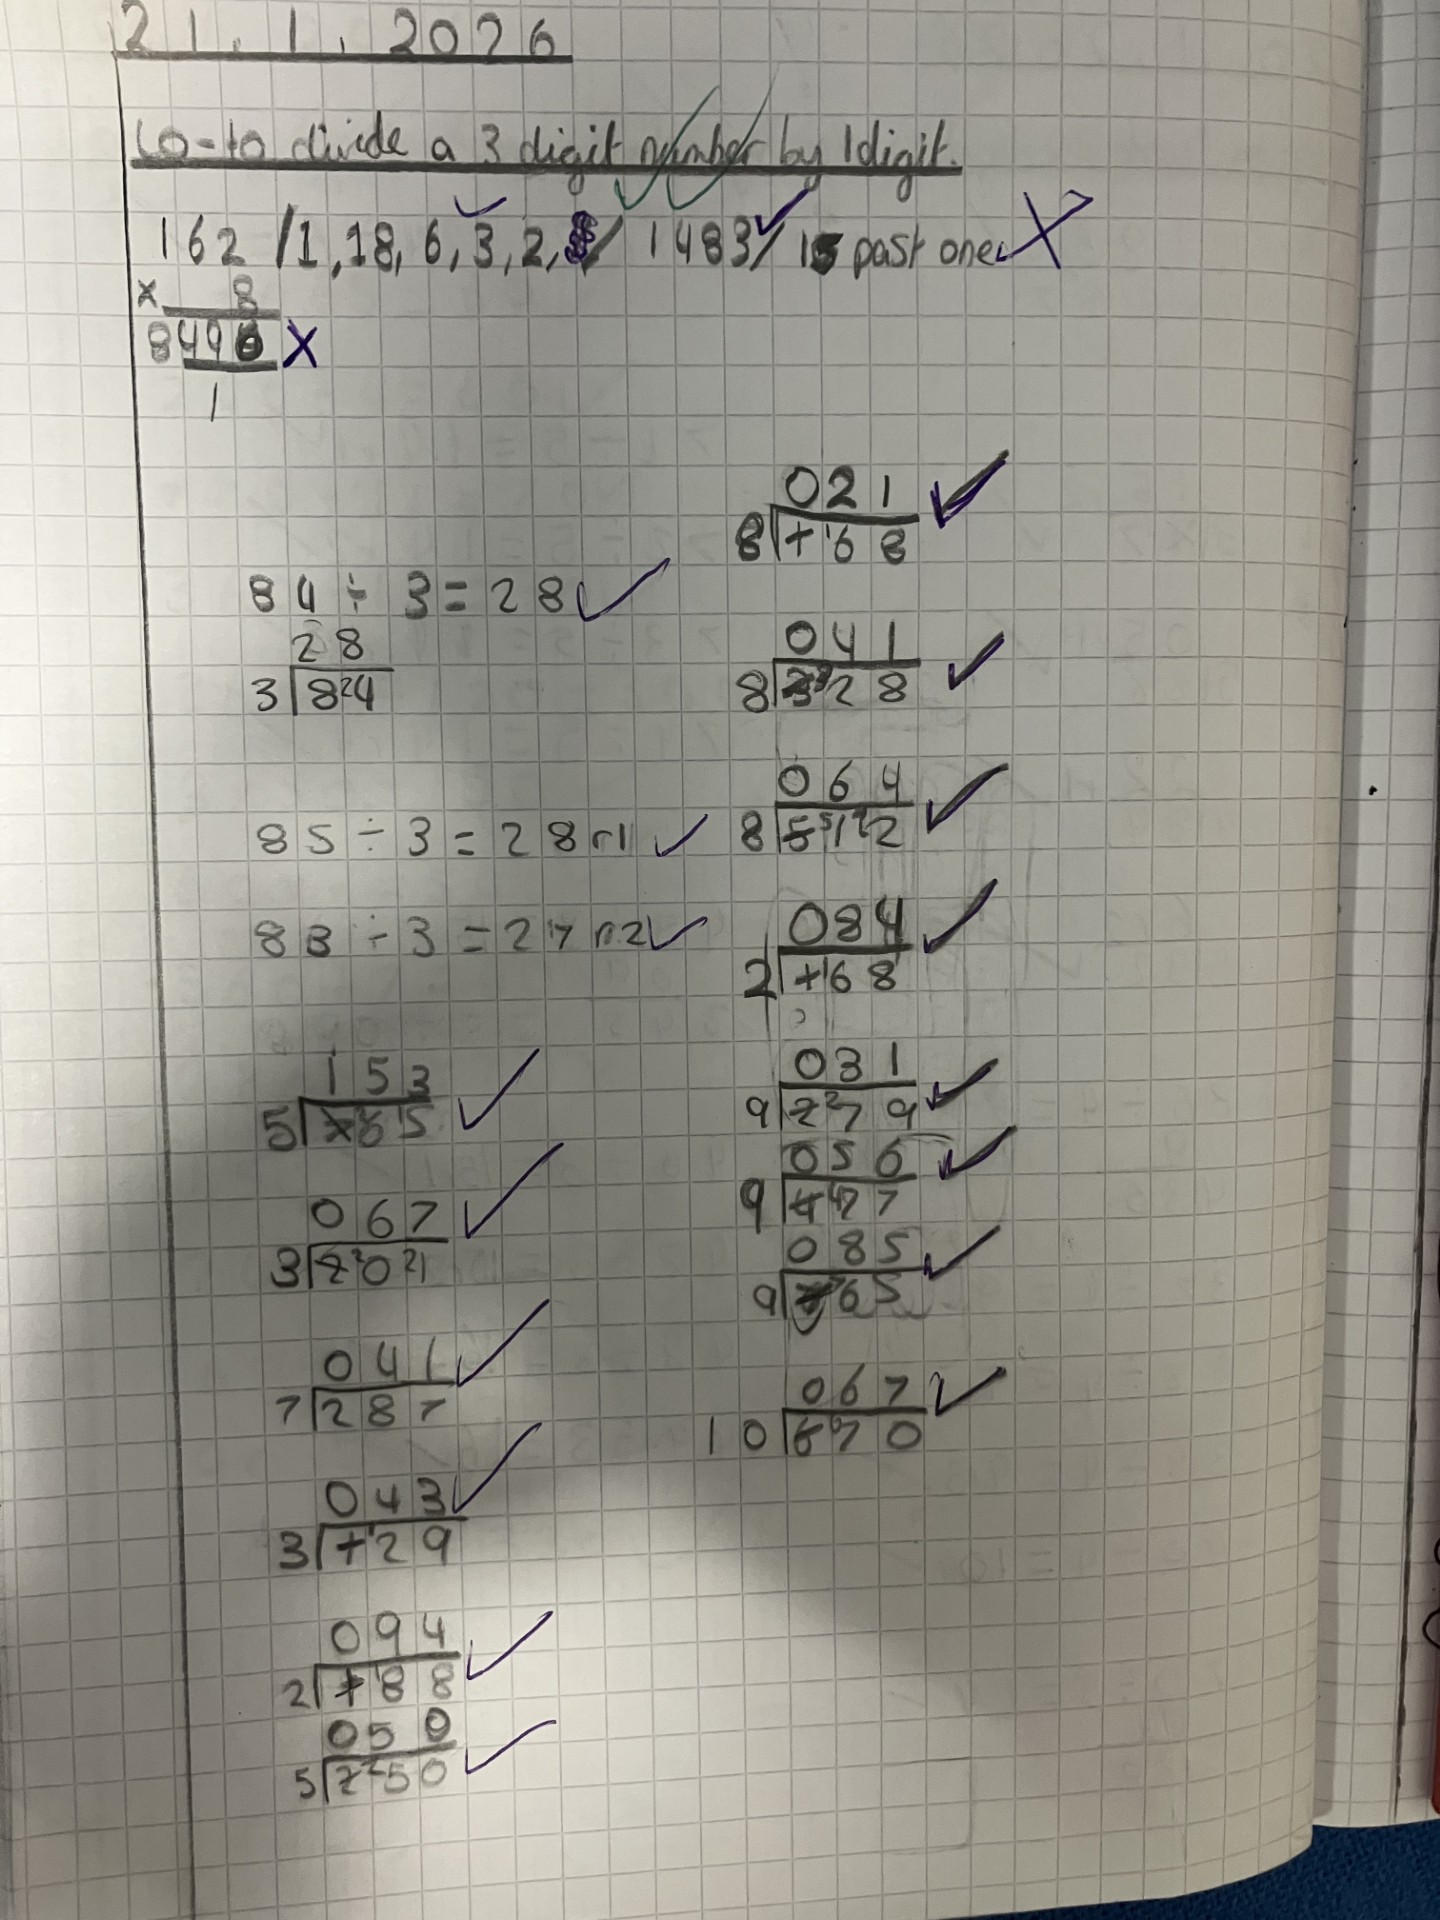 21.1.2026
LO-to divide a 3 digit number by 1digit.
162 /1,18,6,3,2, / 1483/ 15 past one.
x 8
8496
1
84 ÷ 3 = 28
28
3 8 2 4
85 ÷ 3 = 28 r1
83 ÷ 3 = 27 r2
153
5 765
067
3 2 2 0 2 1
041
7 287
043
3 1 1 2 9
094
2 1 1 8 8
050
5 2 2 5 0
021
8 1 1 6 8
041
8 3 3 2 8
064
8 5 5 1 3 2
084
2 1 1 6 8
031
9 2 2 7 9
056
9 4 4 7 7
085
9 7 6 5
067
10 670